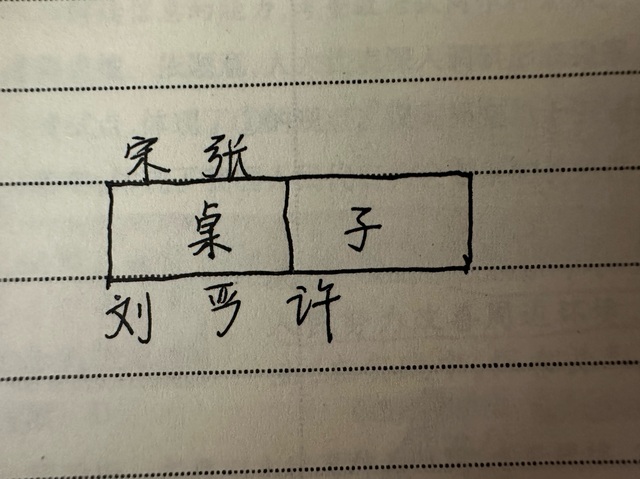 宋 张
桌 子
刘 严 许